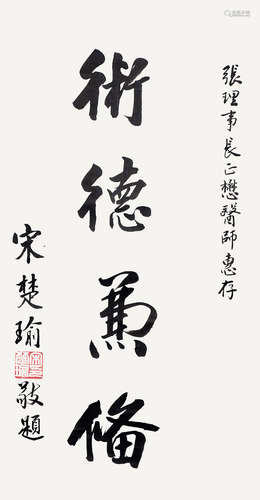 張理事長正懋醫師惠存
術德兼備
宋楚瑜敬題